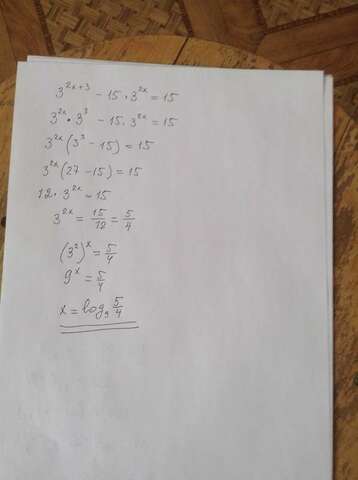 3^{2x+3} - 15 · 3^{2x} = 15
3^{2x} · 3^3 - 15 · 3^{2x} = 15
3^{2x} (3^3 - 15) = 15
3^{2x} (27 - 15) = 15
12 · 3^{2x} = 15
3^{2x} = 15/12 = 5/4
(3^2)^x = 5/4
9^x = 5/4
x = log_9 5/4